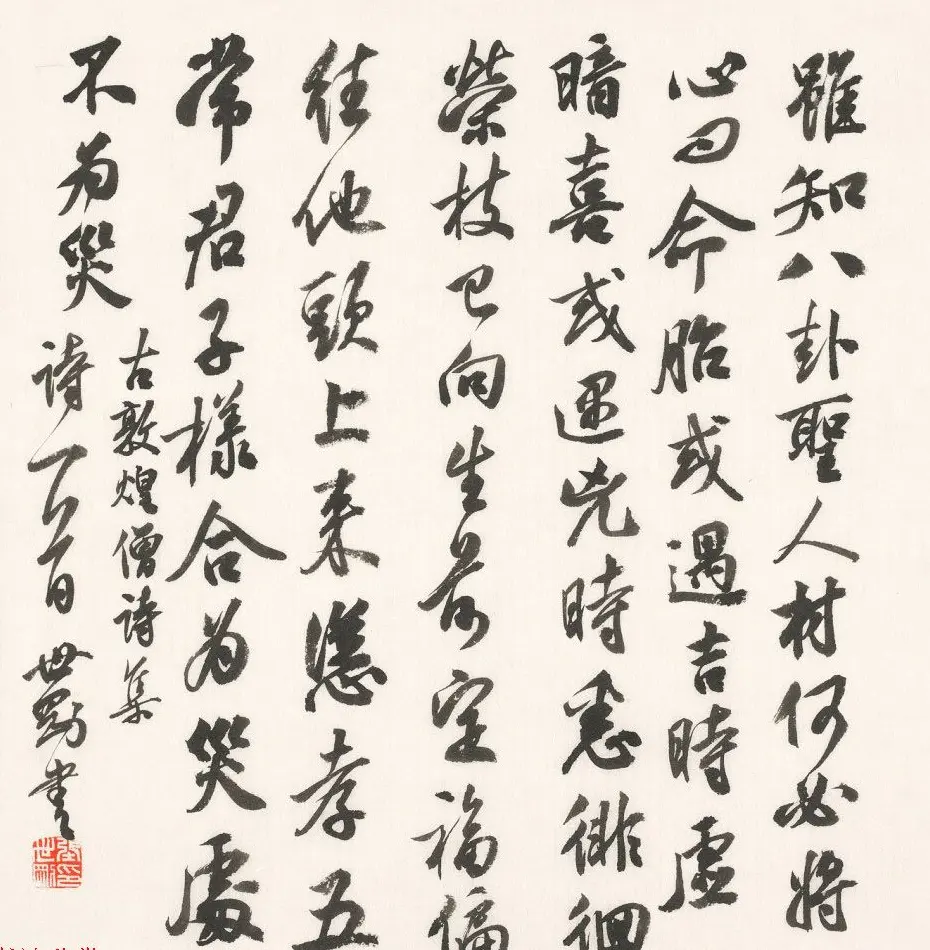 雖知八卦聖人材何必將
心曰命胎或遇吉時虛
暗喜或遇兇時悉徘徊
榮枝已向生前定福偏
往他頭上来憑孝五
常君子樣合为哭處
不为哭
古敦煌僧詩集
詩一首世剛書